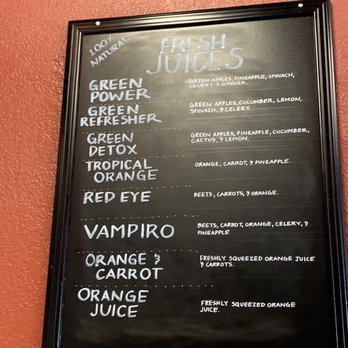 100%
NATURAL
FRESH
JUICES
GREEN
POWER
GREEN APPLES, PINEAPPLE, SPINACH,
CELERY & GINGER.
GREEN
REFRESHER
GREEN APPLES, CUCUMBER, LEMON,
SPINACH, & CELERY.
GREEN
DETOX
GREEN APPLES, PINEAPPLE, CUCUMBER,
CACTUS, & LEMON.
TROPICAL
ORANGE
ORANGE, CARROT, & PINEAPPLE.
RED EYE
BEETS, CARROTS, & ORANGE.
VAMPIRO
BEETS, CARROT, ORANGE, CELERY, &
PINEAPPLE
ORANGE &
CARROT
FRESHLY SQUEEZED ORANGE JUICE
& CARROTS.
ORANGE
JUICE
FRESHLY SQUEEZED ORANGE
JUICE.